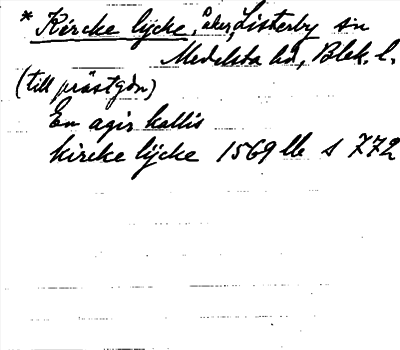 * Kircke lycke, åker, Listerby sn
Medelsta hd, Blek. l.
(till prästgdn)
En agir kallis
kircke lycke 1569 llb s 772